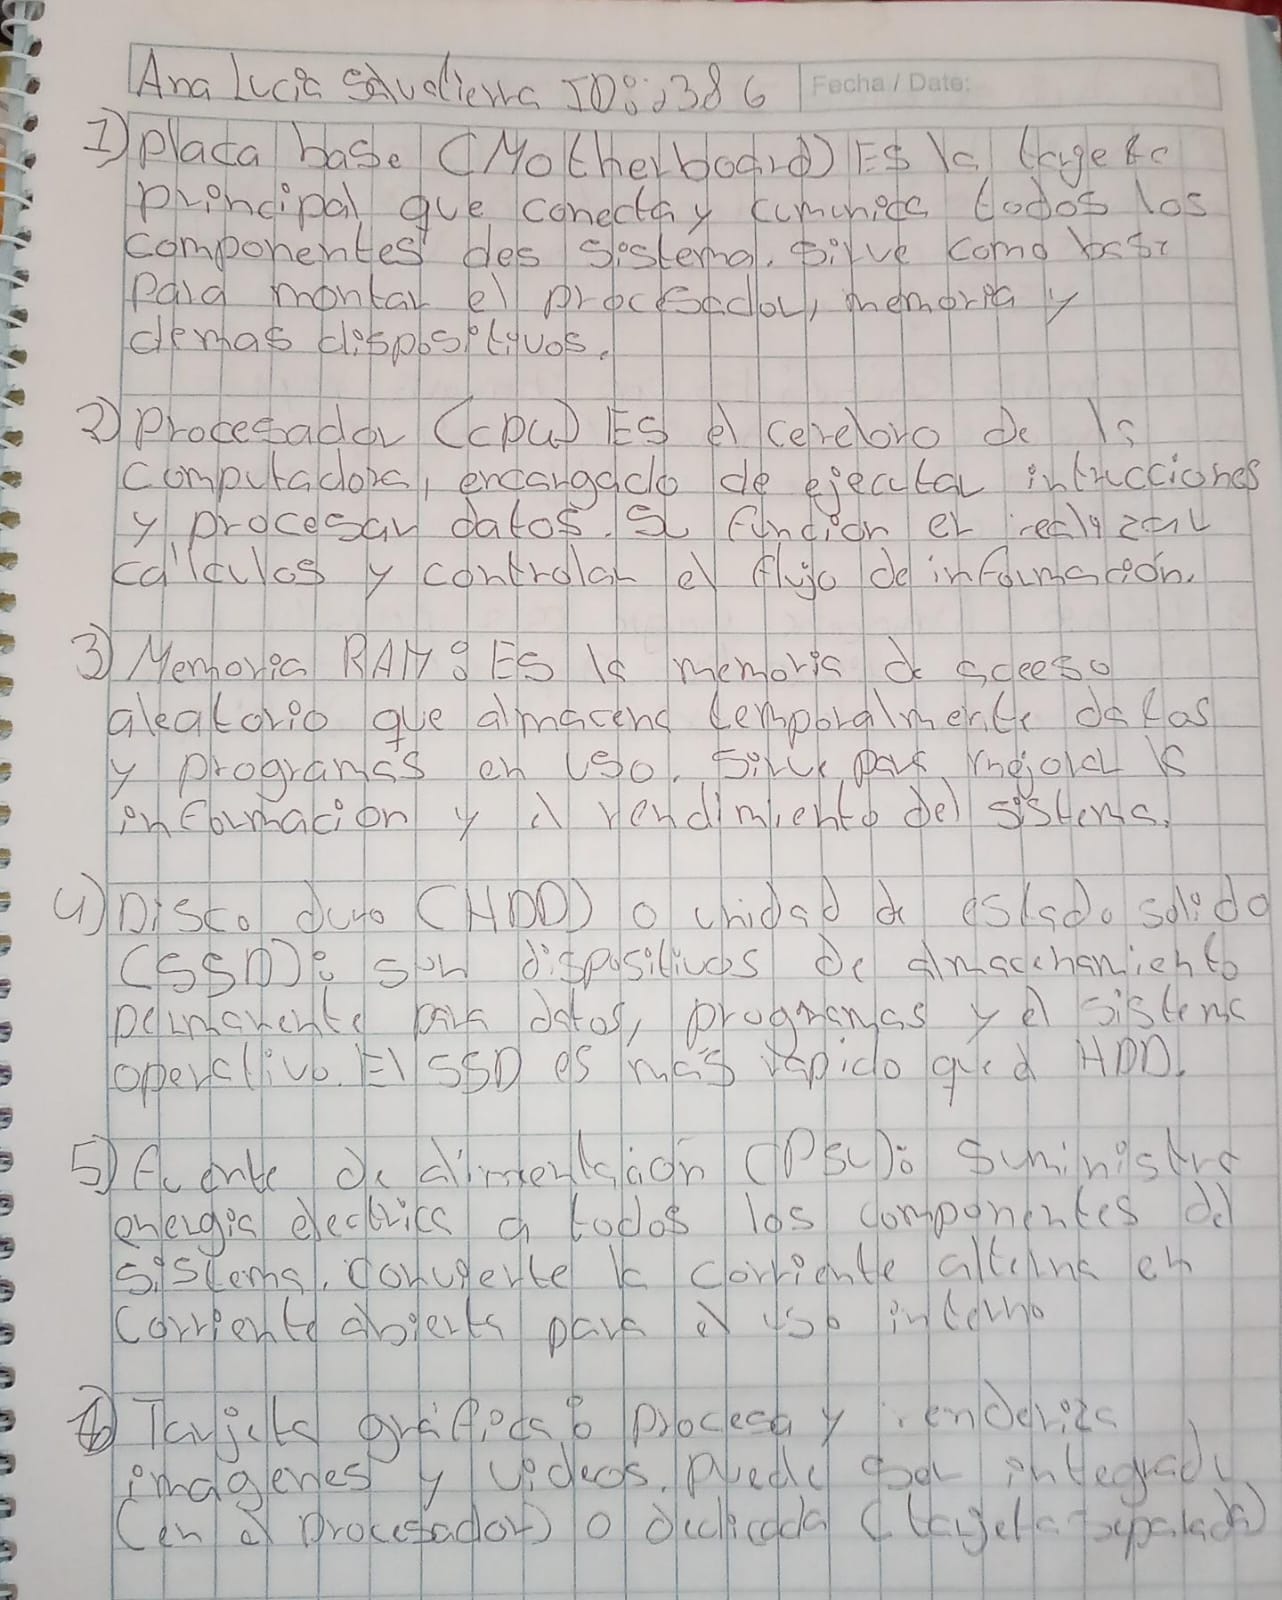 Ana Lucia Salvatierra ID: 2386 Fecha / Date:
1) Placa base (Motherboard) ES la targeta
principal que conecta y comunica todos los
componentes des sistema. sirve como base
para montar el procesador, memoria y
demas dispositivos.
2) Procesador (cpu) ES el cerebro de la
computadora, encargado de ejecutar intrucciones
y procesar datos. Su función er realizar
cálculos y controlar el flujo de información.
3) Memoria RAM: ES la memoria de acceso
aleatorio que almacena temporalmente datos
y programas en uso. Sirve para mejorar la
informacion y el rendimiento del sistema.
4) Disco duro (HDD) o unidad de estado solido
(SSD): son dispositivos de almacenamiento
permanente para datos, programas y el sistema
operativo. El SSD es más rápido que el HDD.
5) fuente de alimentación (PSU): Suministra
energia electrica a todos los componentes del
sistema. convierte la corriente alterna en
corriente abierta para el uso interno
6) Tarjeta gráfica: procesa y renderiza
imagenes y videos. puede ser integrada
(en el procesador) o dedicada (targeta separada)